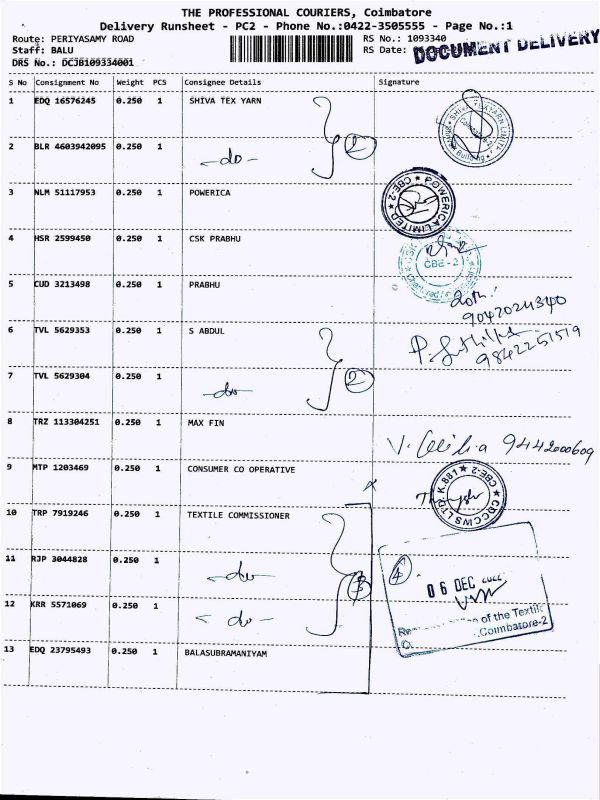 THE PROFESSIONAL COURIERS, Coimbatore
Delivery Runsheet - PC2 - Phone No.:0422-3505555 - Page No.:1
Route: PERIYASAMY ROAD
RS No.: 1093340
Staff: BALU
RS Date:
DOCUMENT DELIVERY
DRS No.: DCJB109334001
S No Consignment No Weight PCS Consignee Details Signature
1 EDQ 16576245 0.250 1 SHIVA TEX YARN
2 BLR 4603942095 0.250 1 -do- 2
3 NLM 51117953 0.250 1 POWERICA
POWERICA LIMITED ★ CBE-2 ★
4 HSR 2599450 0.250 1 CSK PRABHU
CBE - 2
5 CUD 3213498 0.250 1 PRABHU
9042024340
6 TVL 5629353 0.250 1 S ABDUL
9842251519
7 TVL 5629304 0.250 1 -do- 2
8 TRZ 113304251 0.250 1 MAX FIN
V. Cecilia 9442000609
9 MTP 1203469 0.250 1 CONSUMER CO OPERATIVE
CDCCWS LTD. K.881 ★ CBE-2 ★
10 TRP 7919246 0.250 1 TEXTILE COMMISSIONER
11 RJP 3044828 0.250 1 -do- 3
4
06 DEC
12 KRR 5571069 0.250 1 -do-
of the Textile
Coimbatore-2
13 EDQ 23795493 0.250 1 BALASUBRAMANIYAM